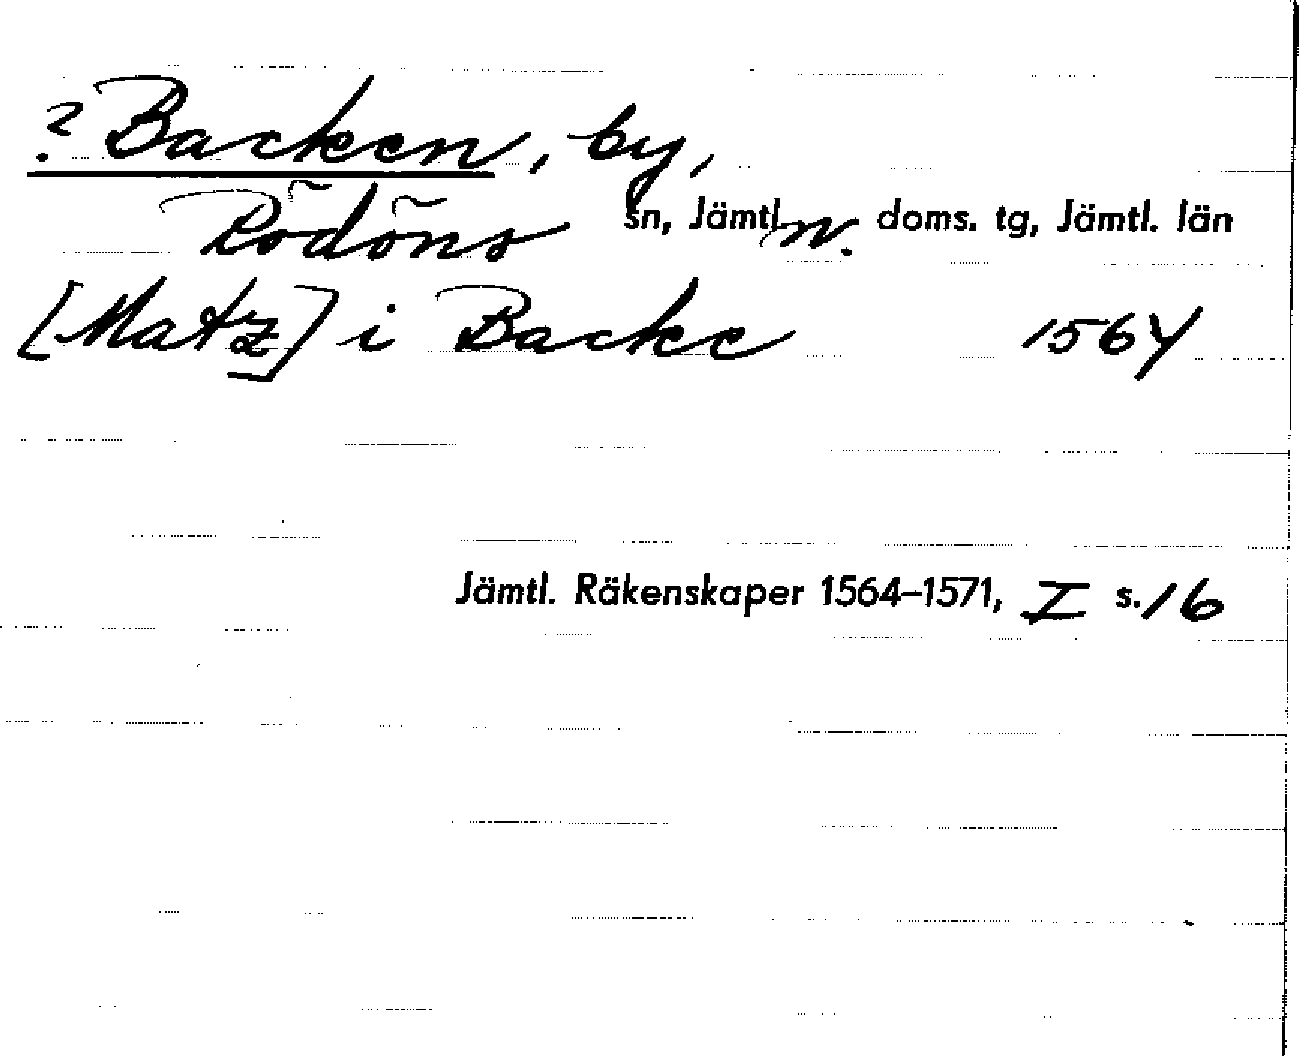 ? Backen, by,
Rödöns sn, Jämtl. n. doms. tg, Jämtl. län
[Matz] i Backe 1564
Jämtl. Räkenskaper 1564–1571, I s. 16